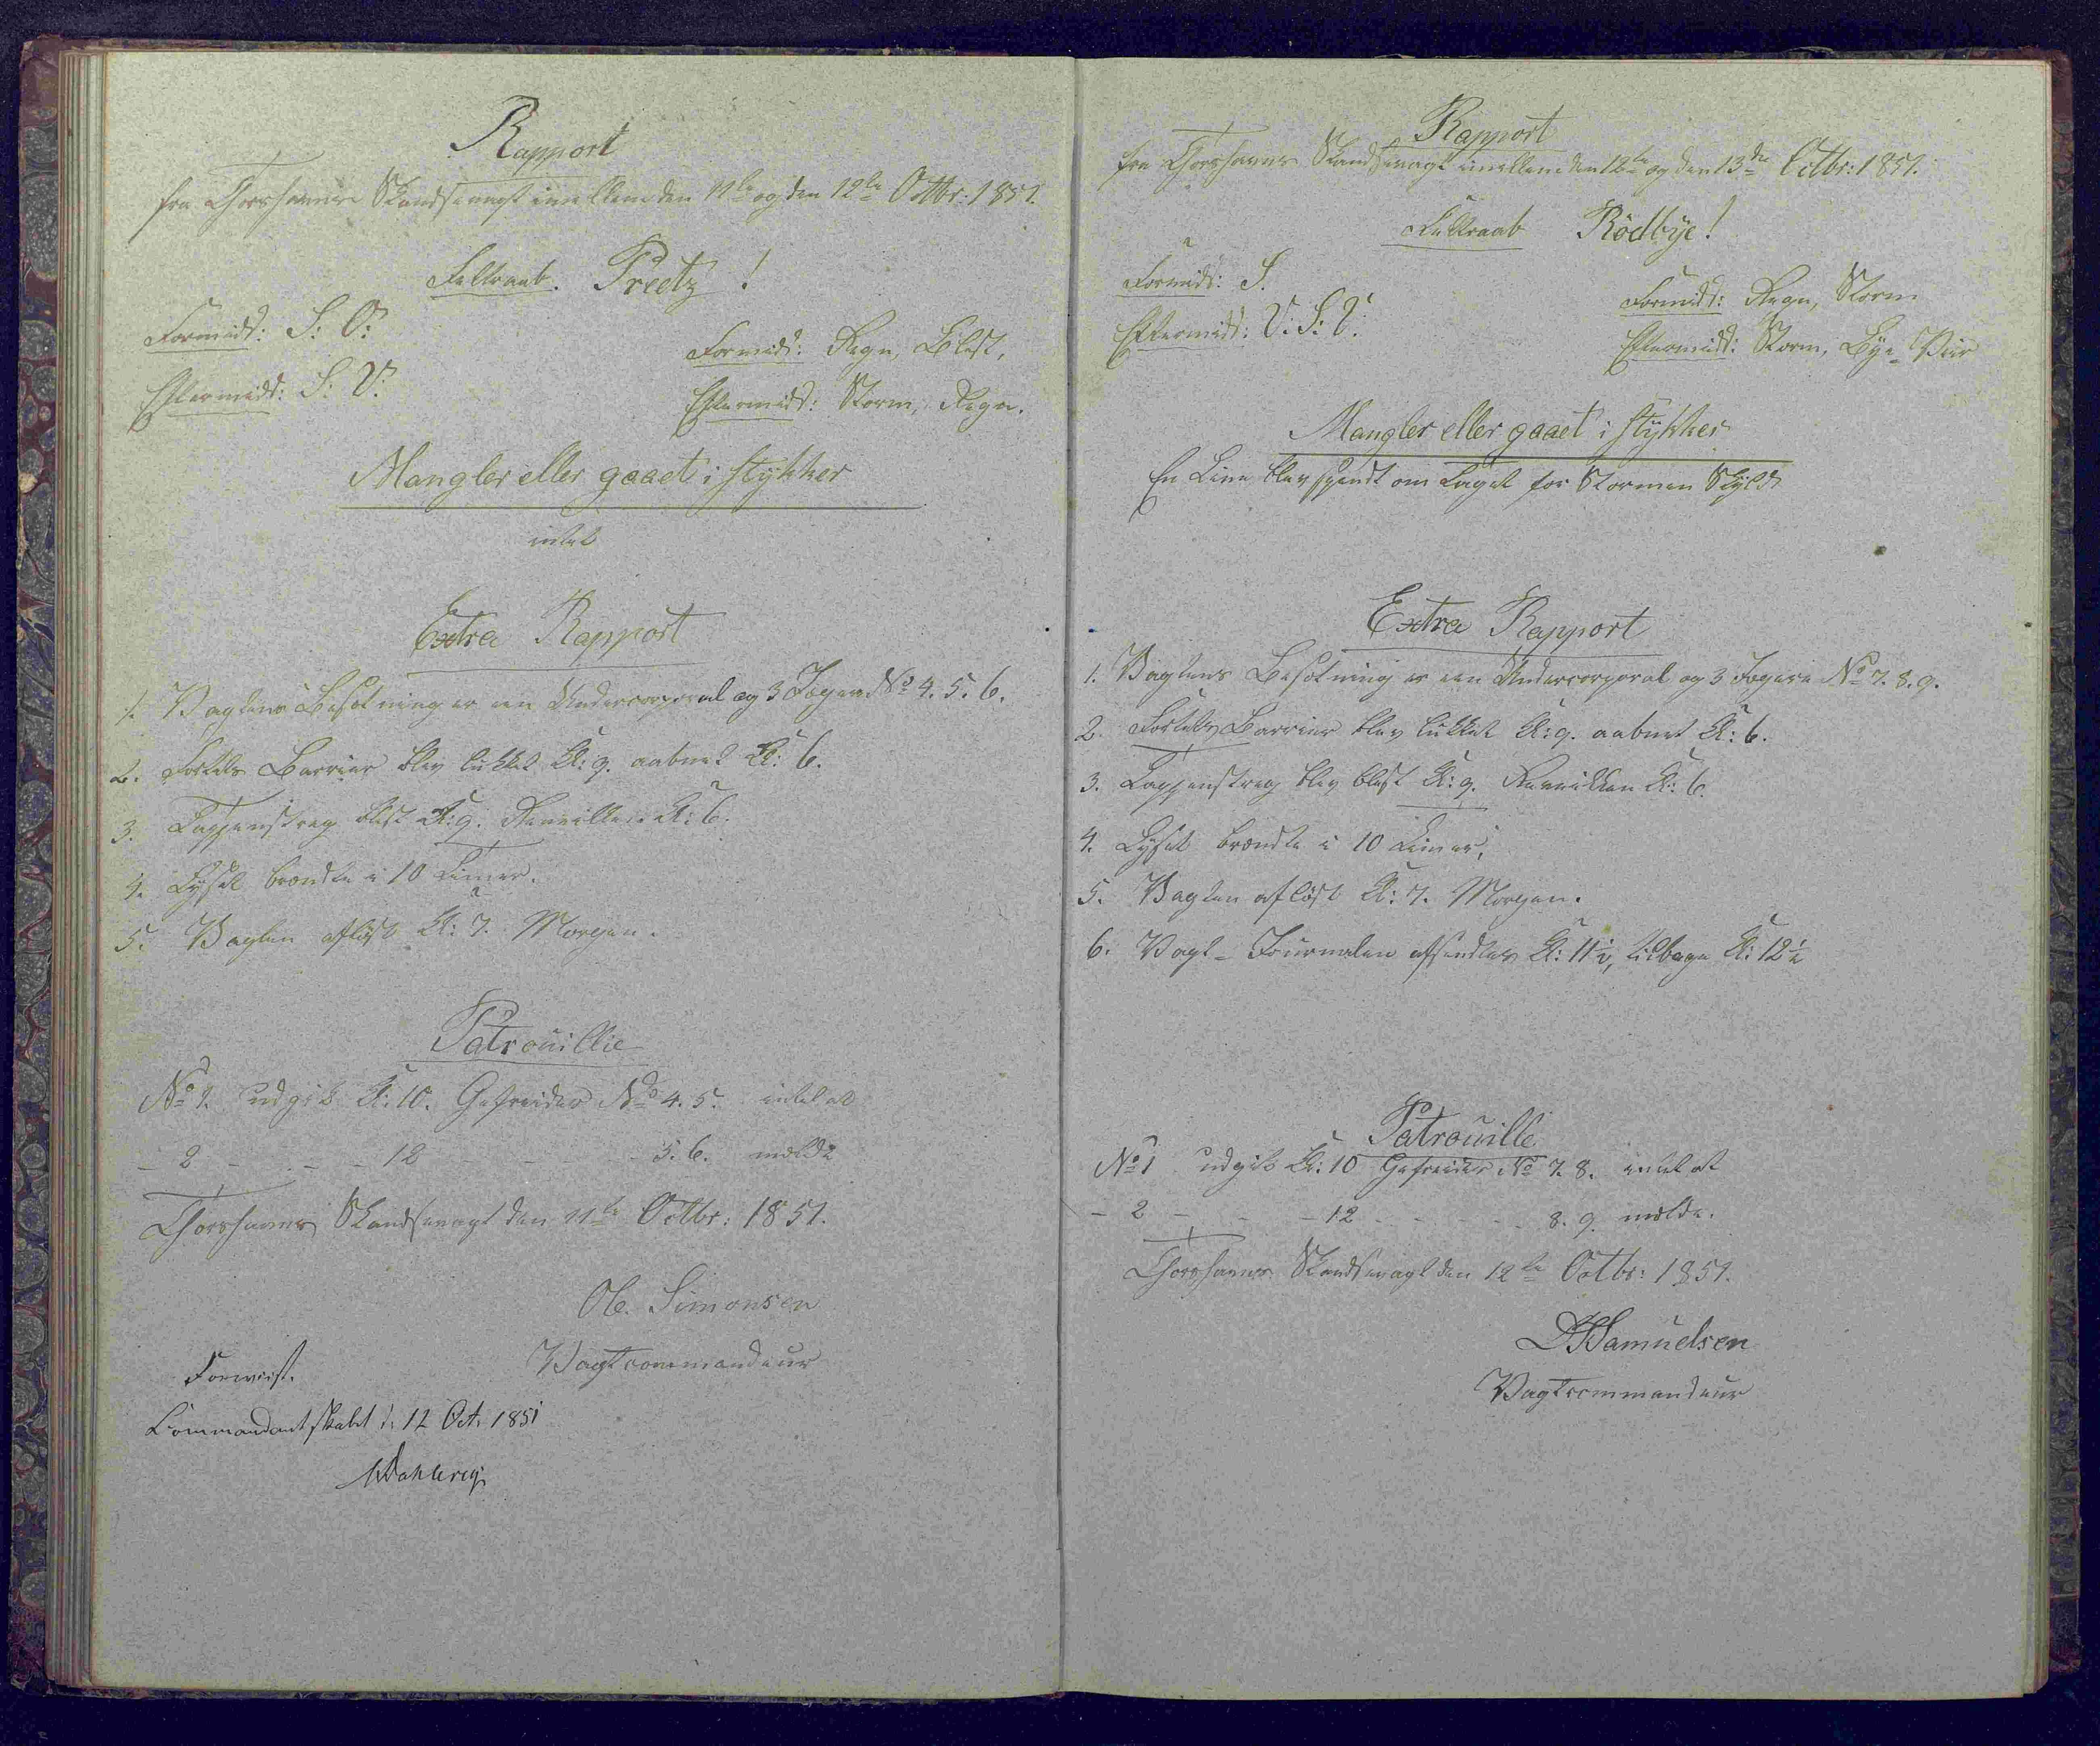 Rapport
fra Thorshavns Skandsevagt imellem den 11te og den 12te Octbr: 1851.
Feltraab. Preetz!
Formidd: S: O:
Eftermidd: S: V:
Formidd: Regn, Blæst,
Eftermidd: Storm, Regn.
Mangler eller gaaet i stykker
intet
Extra Rapport
1. Vagtens Besætning er een Undercorporal og 3 Jægere No 4. 5. 6.
2. Fortets Barrier blev lukket Kl: 9. aabnet Kl: 6.
3. Tappenstreg blæst Kl: 9. Reveillen Kl: 6.
4. Lyset brændte i 10 Timer.
5. Vagten afløst Kl: 7. Morgen.
Patrouillie
No 1. udgik Kl: 10. Gefreider No 4. 5. intet at
- 2 - - - 12 - - - 5. 6. melde
Thorshavns Skandsevagt den 11te Octbr: 1851.
Ole. Simonsen
Vagtcommandeur
Foreviist.
Commandantskabet d: 12 Oct. 1851
Dahlerup
Rapport
fra Thorshavns Skandsevagt imellem den 12te og den 13de Octbr: 1851.
Feltraab Rödbye!
Formidd: S.
Eftermidd: V: S: V:
Formidd: Regn, Storm
Eftermidd: Storm, Bye-Viir
Mangler eller gaaet i stykker
En Line blev spendt om Taget for Stormen Skyld
Extra Rapport
1. Vagtens Besætning er een Undercorporal og 3 Jægere No 7. 8. 9.
2. Fortets Barrier blev lukket Kl: 9. aabnet Kl: 6.
3. Tappenstreg blev blæst Kl: 9. Reveillen Kl: 6.
4. Lyset brændte i 10 Timer,
5. Vagten afløst Kl: 7. Morgen.
6. Vagt-Journalen afsendtes Kl: 11½, tilbage Kl: 12½
Patrouille
No 1 udgik Kl: 10 Gefreider No 7. 8. intet at
- 2 - - - 12 - - - - 8. 9. melde.
Thorshavns Skandsevagt den 12te Octbr: 1851.
Samuelsen
Vagtcommandeur